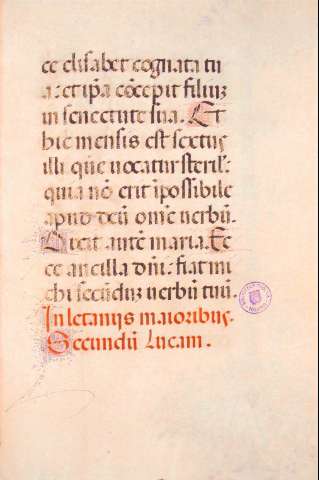 ce elisabet cognata tu
a: et ip̄a cōcepit filiuz
in senectute sua. Et
hic mensis est sextus
illi que vocatur steril:
quia nō erit īpossibile
apud deū om̄e verbū.
Dixit autē maria. Ec
ce ancilla dn̄i: fiat mi
chi secūduz verbū tuū.
In letanijs maioribus.
Secundū Lucam.